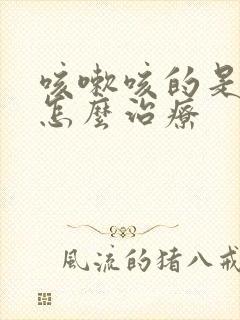 咳嗽咳的是
怎麼治療
風流的猪八戒